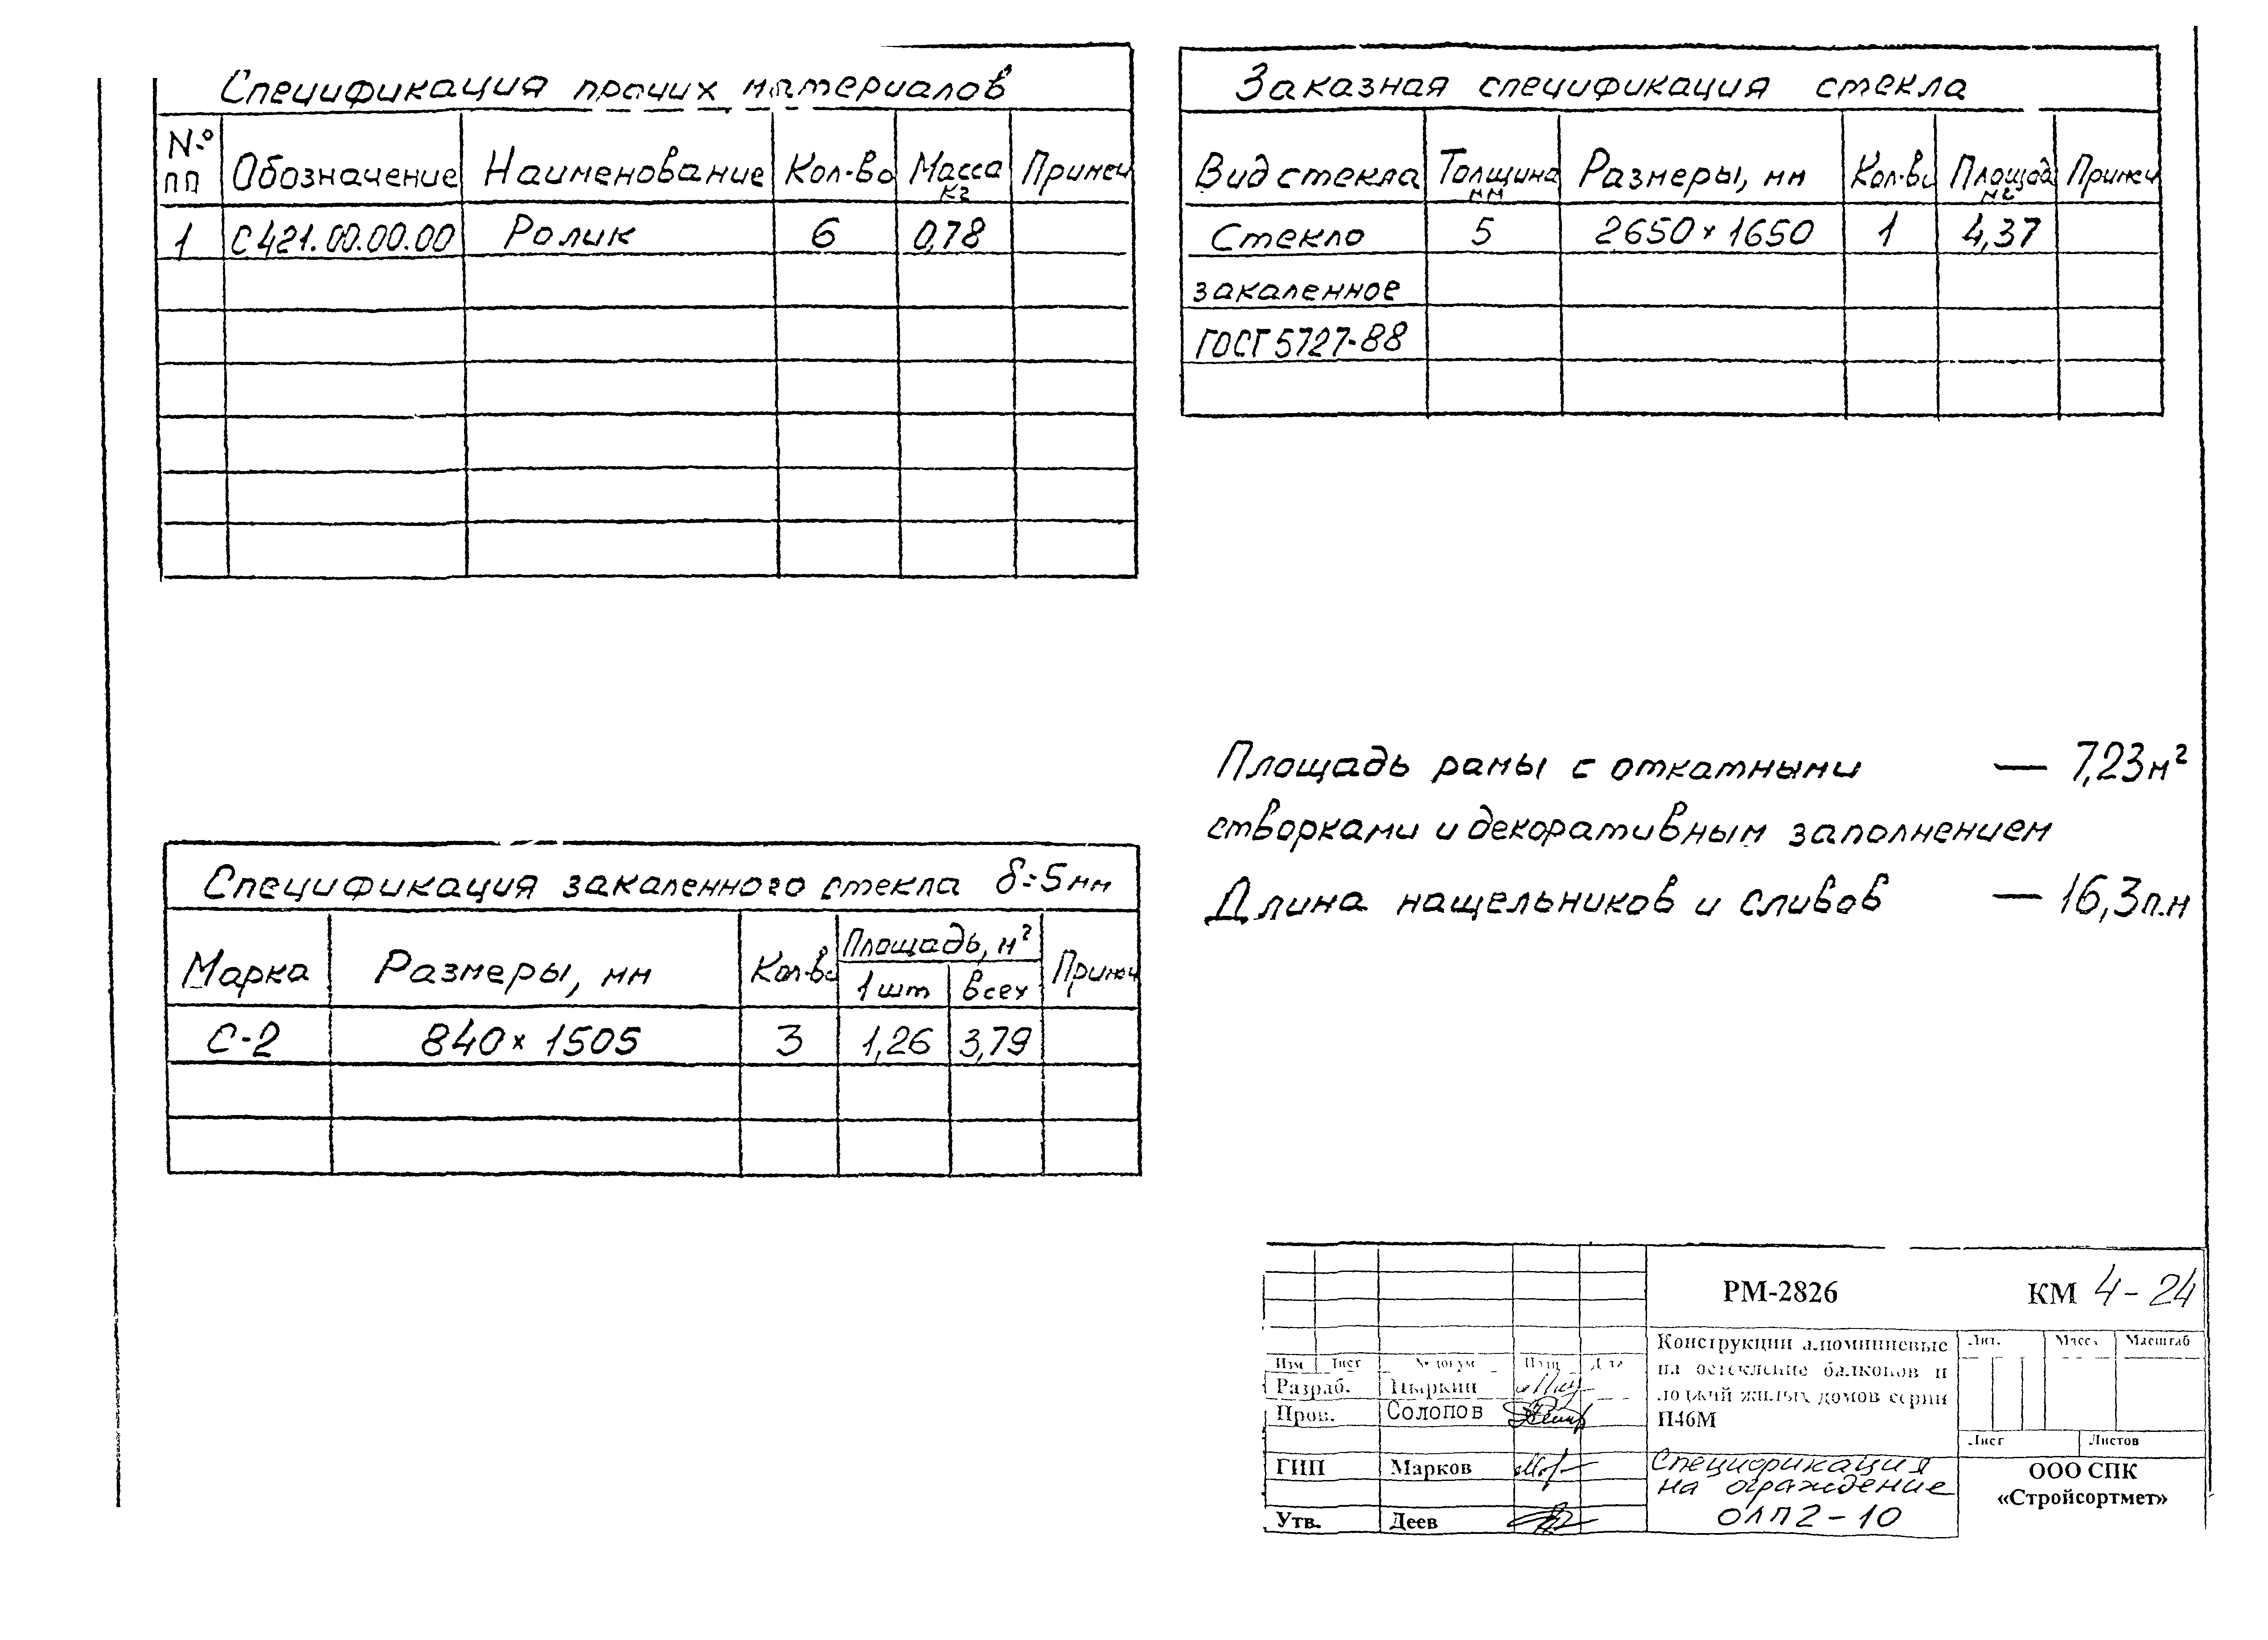 Спецификация прочих материалов
№ пп Обозначение Наименование Кол-во Масса кг Примеч
1 С421.00.00.00 Ролик 6 0,78
Заказная спецификация стекла
Вид стекла Толщина мм Размеры, мм Кол-во Площадь м² Примеч
Стекло 5 2650×1650 1 4,37
закаленное
ГОСТ 5727-88
Площадь рамы с откатными — 7,23м²
створками и декоративным заполнением
Длина нащельников и сливов — 16,3п.м
Спецификация закаленного стекла δ=5мм
Марка Размеры, мм Кол-во Площадь, м² Примеч
1шт всех
С-2 840×1505 3 1,26 3,79
РМ-2826 КМ 4-24
Конструкции алюминиевые
на остекление балконов и
лоджий жилых домов серии
П46М
Лит. Масса Масштаб
Лист Листов
Изм Лист № докум Подп Дата
Разраб. Цыркин
Пров. Солопов
ГИП Марков
Утв. Деев
Спецификация
на ограждение
ОЛП2-10
ООО СПК
«Стройсортмет»